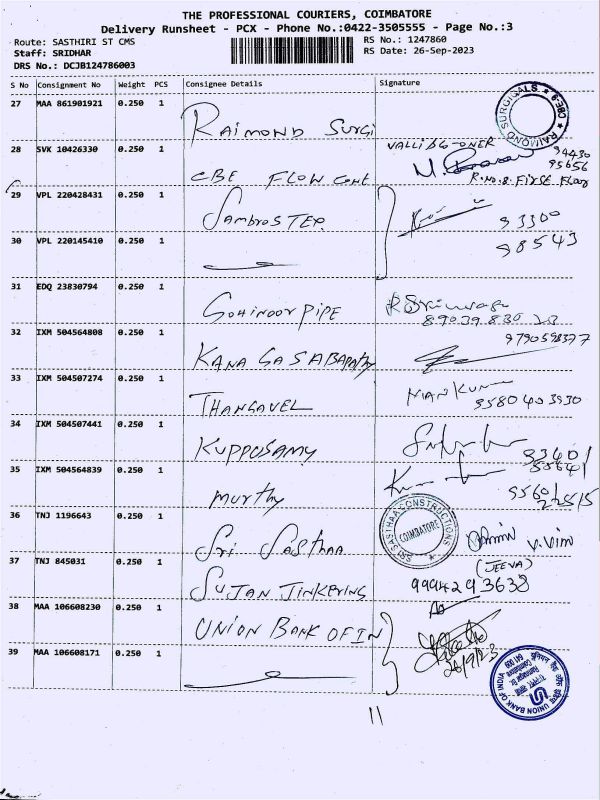 THE PROFESSIONAL COURIERS, COIMBATORE
Delivery Runsheet - PCX - Phone No.:0422-3505555 - Page No.:3
Route: SASTHIRI ST CMS
RS No.: 1247860
Staff: SRIDHAR
RS Date: 26-Sep-2023
DRS No.: DCJB124786003
S No Consignment No Weight PCS Consignee Details Signature
27 MAA 861901921 0.250 1 RAIMOND SURGI
RAIMOND SURGICALS CBE-9
28 SVK 10426330 0.250 1 CBE FLOW CONT
94430
95656
R.NO.8. FIRST FLOO
29 VPL 220428431 0.250 1 SAMBROSTER
93300
98543
30 VPL 220145410 0.250 1
31 EDQ 23830794 0.250 1 GOHINOOR PIPE
32 IXM 504564808 0.250 1 KANAGASABAPATHY
9790598377
33 IXM 504507274 0.250 1 THANGAVEL
9580403930
34 IXM 504507441 0.250 1 KUPPOSAMY
35 IXM 504564839 0.250 1 MURTHY
36 TNJ 1196643 0.250 1 Sri Sasthaa
SRI SASTHAA CONSTRUCTIONS
COIMBATORE
37 TNJ 845031 0.250 1 SUJAN TINKERING
(JEEVA)
9994293638
38 MAA 106608230 0.250 1 UNION BANK OF IN
26/9/23
39 MAA 106608171 0.250 1
UNION BANK OF INDIA
11